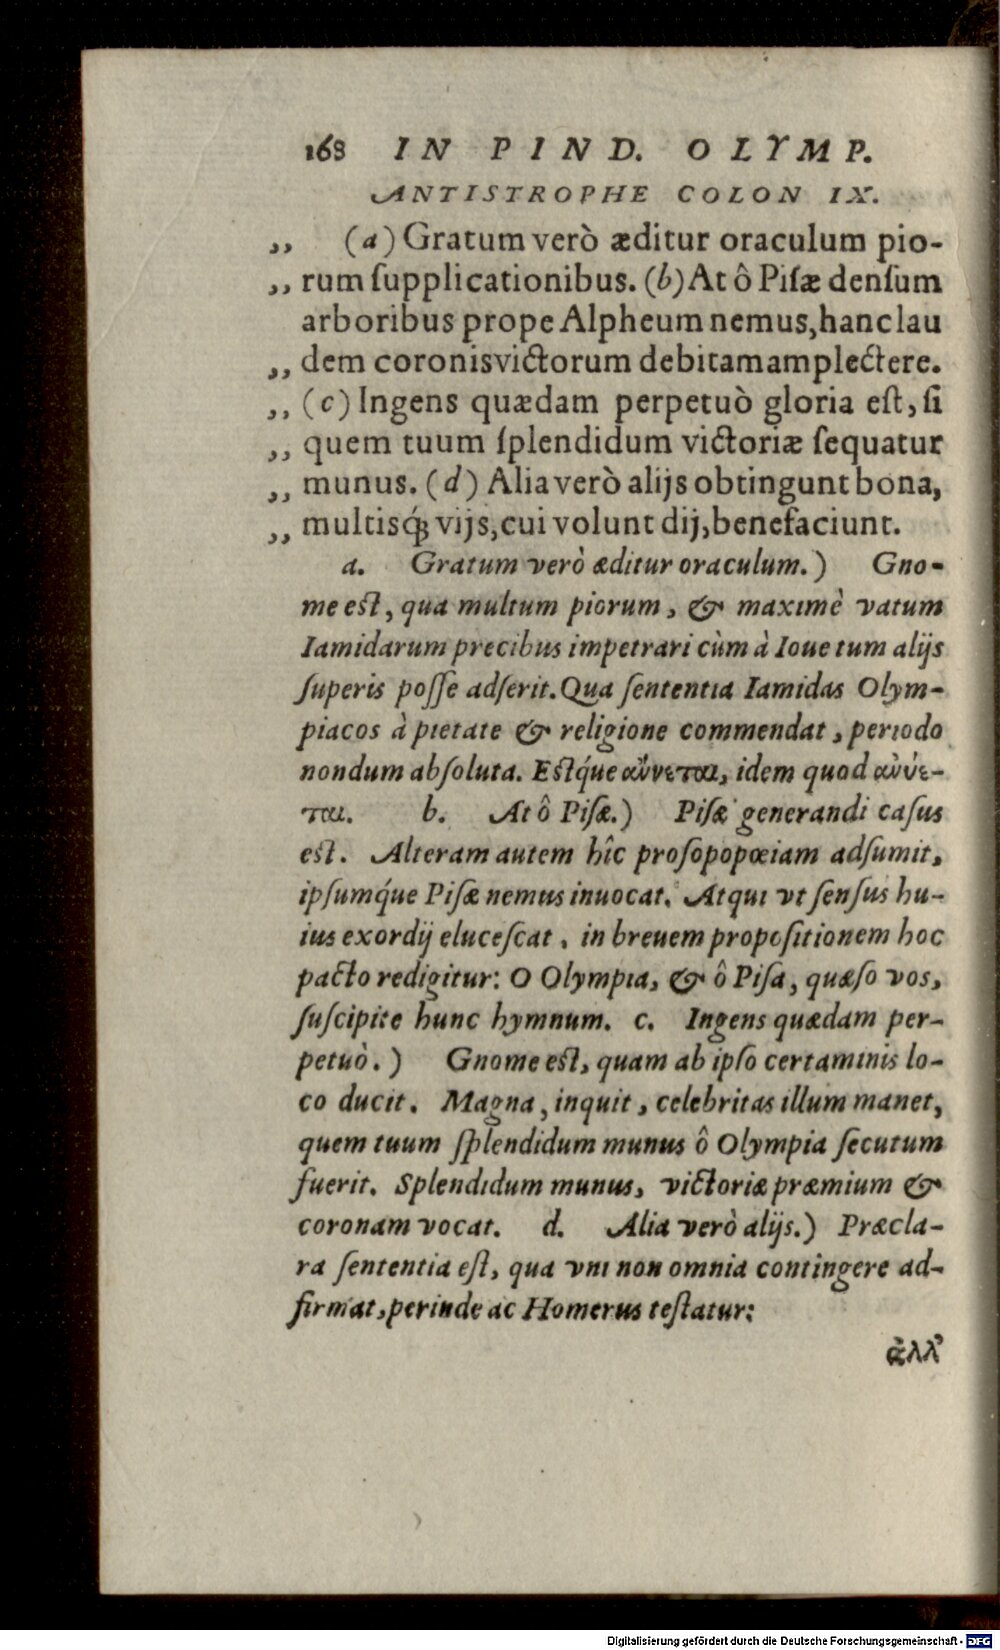 168 IN PIND. OLYMP.
ANTISTROPHE COLON IX.
,, (a) Gratum verò æditur oraculum pio-
,, rum ſupplicationibus. (b) At ô Piſæ denſum
arboribus prope Alpheum nemus, hanc lau
,, dem coronis victorum debitam amplectere.
,, (c) Ingens quædam perpetuò gloria eſt, ſi
,, quem tuum ſplendidum victoriæ ſequatur
,, munus. (d) Alia verò alijs obtingunt bona,
,, multisq́; vijs, cui volunt dij, benefaciunt.
a. Gratum verò æditur oraculum.) Gno-
me eſt, qua multum piorum, & maximè vatum
Iamidarum precibus impetrari cùm à Ioue tum alijs
ſuperis poſſe adſerit. Qua ſententia Iamidas Olym-
piacos à pietate & religione commendat, periodo
nondum abſoluta. Eſtq́ue αὤνεται, idem quod αὐύε-
ται. b. At ô Piſæ.) Piſæ generandi caſus
eſt. Alteram autem hîc proſopopœiam adſumit,
ipſumq́ue Piſæ nemus inuocat. Atqui vt ſenſus hu-
ius exordij eluceſcat, in breuem propoſitionem hoc
pacto redigitur: O Olympia, & ô Piſa, quæſo vos,
ſuſcipite hunc hymnum. c. Ingens quædam per-
petuò.) Gnome eſt, quam ab ipſo certaminis lo-
co ducit. Magna, inquit, celebritas illum manet,
quem tuum ſplendidum munus ô Olympia ſecutum
fuerit. Splendidum munus, victoriæ præmium &
coronam vocat. d. Alia verò alijs.) Præcla-
ra ſententia eſt, qua vni non omnia contingere ad-
firmat, perinde ac Homerus teſtatur:
ἀλλ᾽
Digitalisierung gefördert durch die Deutsche Forschungsgemeinschaft - DFG